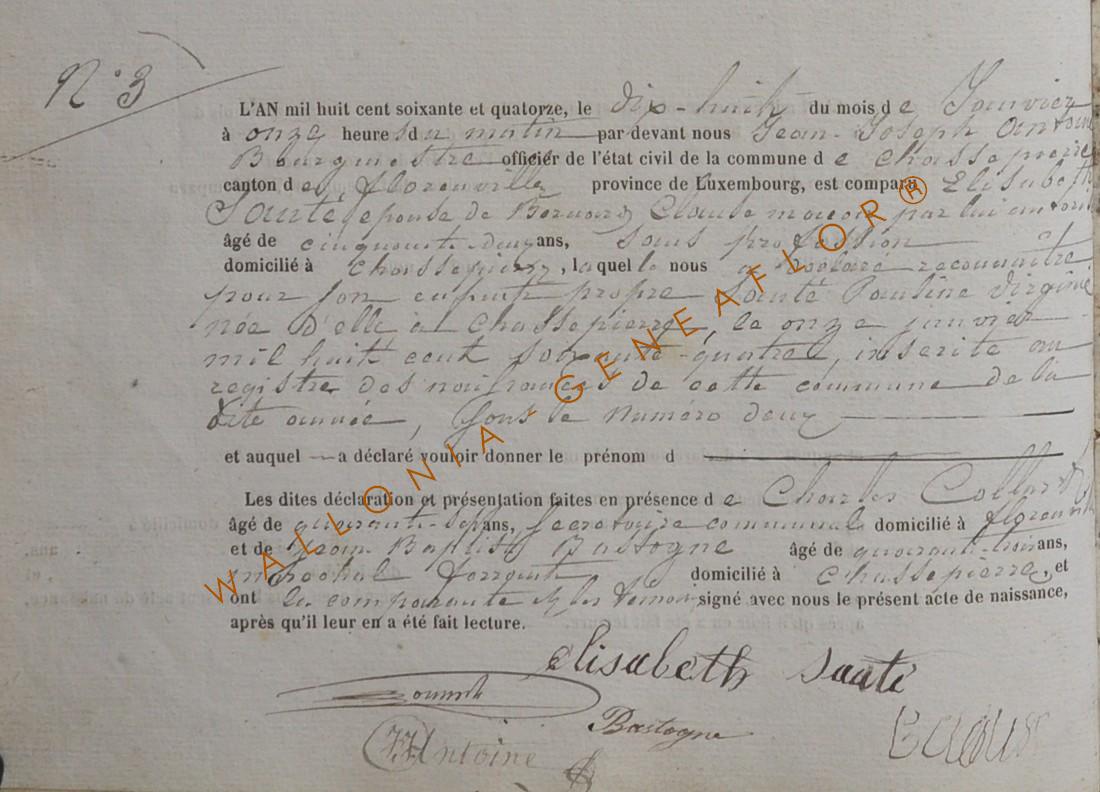 N° 3
L'AN mil huit cent soixante et quatorze, le dix-huit du mois de Janvier
à onze heures du matin par devant nous Jean-Joseph Antoine
Bourgmestre officier de l'état civil de la commune de Chassepierre
canton de Florenville province de Luxembourg, est comparu Elisabeth
Santé épouse de Bernard Claude maçon, par lui autoris
âgé de cinquante deux ans, sans profession
domicilié à Chassepierre, laquelle nous a déclaré reconnaître
pour son enfant propre Santé Pauline Virginie
née d'elle à Chassepierre, le onze janvier
mil huit cent soixante-quatre, inscrite au
registre des naissances de cette commune de la
dite année, sous le numéro deux
et auquel a déclaré vouloir donner le prénom d
Les dites déclaration et présentation faites en présence de Charles Collard
âgé de quarante-sept ans, secrétaire communal domicilié à Florenville
et de Jean Baptiste Bastogne âgé de quarante-trois ans,
maréchal ferrant domicilié à Chassepierre, et
ont la comparante et les témoins signé avec nous le présent acte de naissance,
après qu'il leur en a été fait lecture.
elisabeth santé
Bastogne
JJAntoine
WALLONIA - GENEAFLOR®